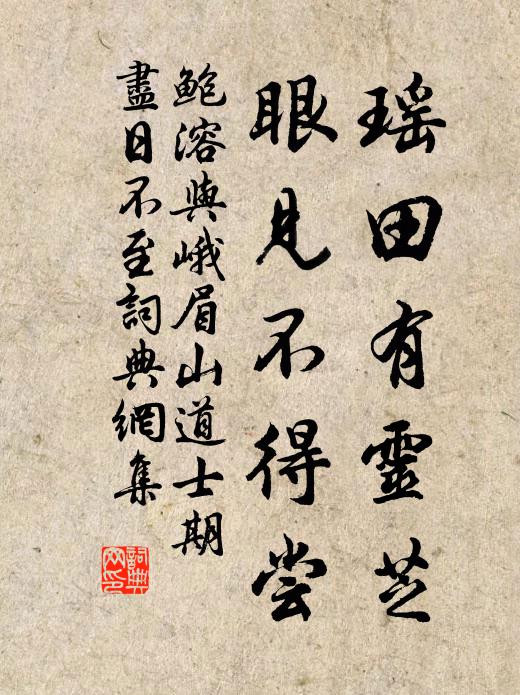 瑶田有靈芝
眼見不得尝
鲍溶與峨眉山道士期
盡日不至詞典網集
詞典网印